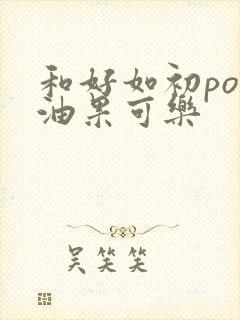 和好如初po
油果可樂
吴笑笑